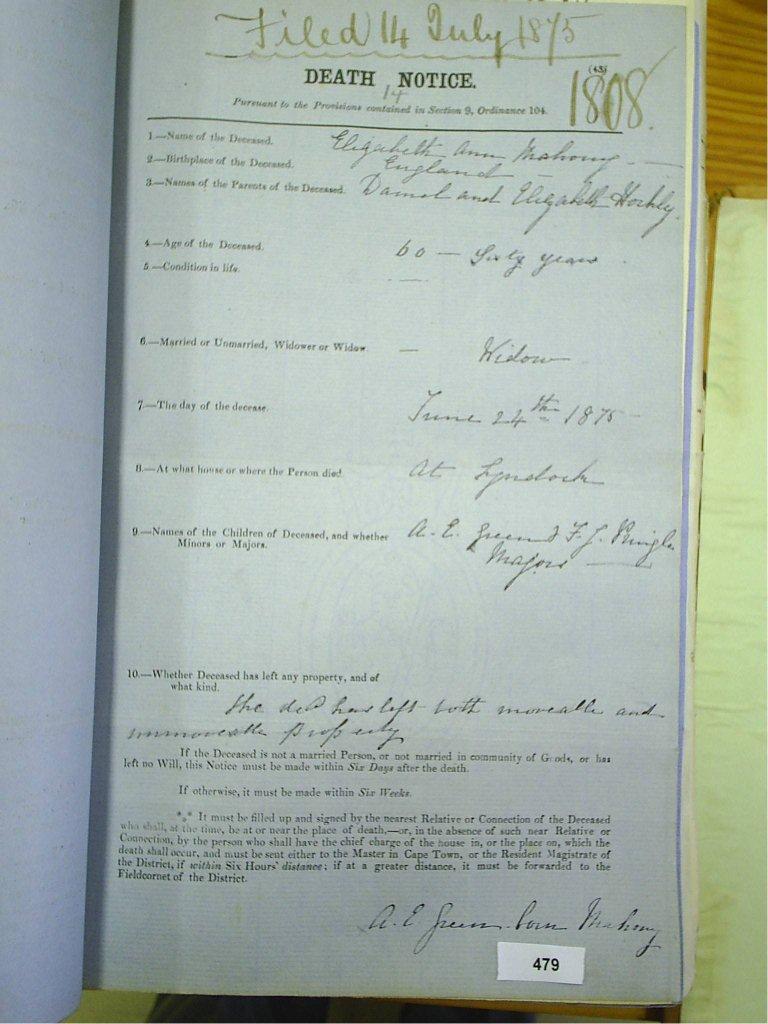 Filed 14 July 1875
DEATH NOTICE.
(43)
1808.
14
Pursuant to the Provisions contained in Section 9, Ordinance 104.
1.—Name of the Deceased. Elizabeth Ann Mahony —
2.—Birthplace of the Deceased. England —
3.—Names of the Parents of the Deceased. Daniel and Elizabeth Hockly.
4.—Age of the Deceased. 60 — Sixty years
5.—Condition in life. —
6.—Married or Unmarried, Widower or Widow. — Widow
7.—The day of the decease. June 24th 1875 —
8.—At what house or where the Person died. At Lyndoch
9.—Names of the Children of Deceased, and whether A. E. Green & F. J. Pringle
Minors or Majors. Majors —
10.—Whether Deceased has left any property, and of
what kind.
The decd has left both moveable and
immoveable property
If the Deceased is not a married Person, or not married in community of Goods, or has
left no Will, this Notice must be made within Six Days after the death.
If otherwise, it must be made within Six Weeks.
*** It must be filled up and signed by the nearest Relative or Connection of the Deceased
who shall, at the time, be at or near the place of death,—or, in the absence of such near Relative or
Connection, by the person who shall have the chief charge of the house in, or the place on, which the
death shall occur, and must be sent either to the Master in Cape Town, or the Resident Magistrate of
the District, if within Six Hours' distance; if at a greater distance, it must be forwarded to the
Fieldcornet of the District.
A. E Green born Mahony
479